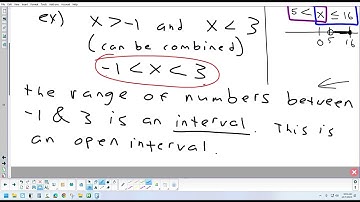 ex) x > -1 and x < 3
(can be combined)
-1 < x < 3
the range of numbers between
-1 & 3 is an interval. This is
an open interval.
5 < x ≤ 16
0 5 16